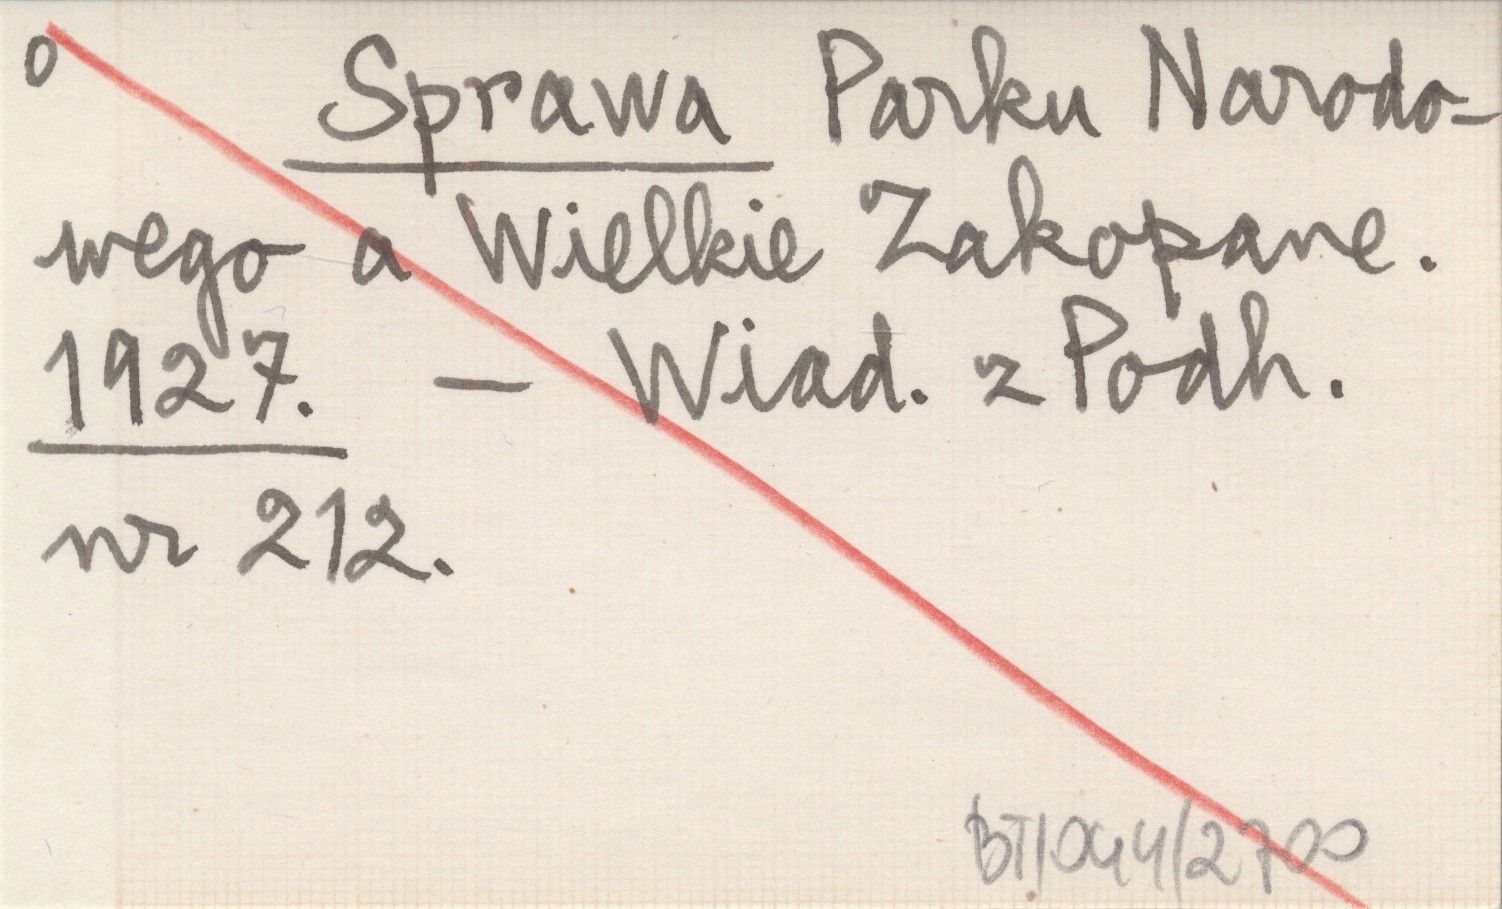 o Sprawa Parku Narodo-
wego a Wielkie Zakopane.
1927. — Wiad. z Podh.
nr 212.
BT/044/2700